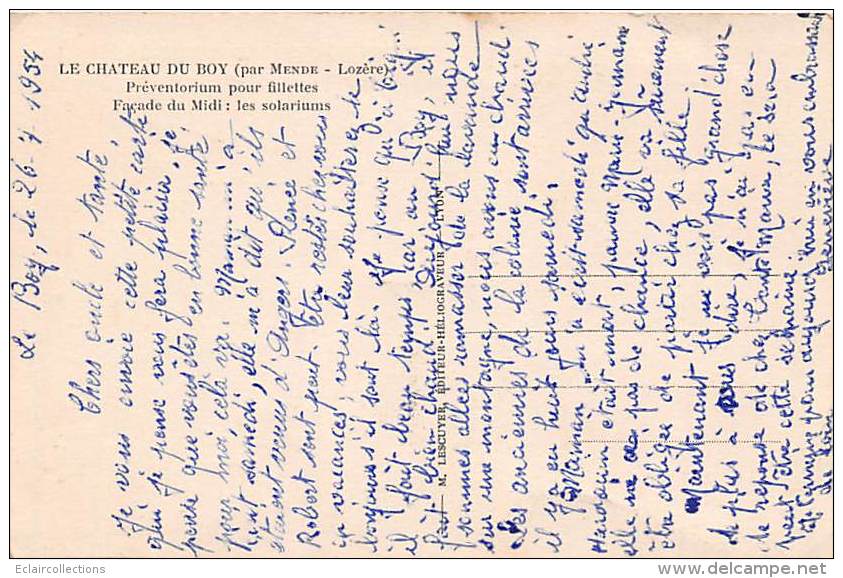 LE CHATEAU DU BOY (par MENDE - Lozère)
Préventorium pour fillettes
Façade du Midi : les solariums
M. LESCUYER, ÉDITEUR-HÉLIOGRAVEUR, LYON
Le Boy, le 26-7-1954
Chers oncle et tante,
Je vous envoie cette petite carte
qui je pense vous fera plaisir. Je
pense que vous êtes en bonne santé
pour moi, celà va. Maman m'a
samedi, elle m'a dit qu'ils
étaient venus d'Angers. Renée et
Robert sont peut-être restés chez vous
en vacances, vous leur souhaiterez le
bonjour s'il sont là. Je pense qu'ici
il fait beau temps car au Boy, il
fait bien chaud. Aujourd'hui nous
sommes allées ramasser de la lavande
sur une montagne, nous avons eu chaud.
Les anciennes de la colonie sont arrivées
il y a eu huit jours samedi.
Maman m'a écrit samedi qu'André
était mort, pauvre Marie
elle n'a pas de chance, elle va surement
être obligée de partir chez sa fille.
Maintenant je ne vois pas grand'chose
de plus à vous dire, je n'ai pas eu
de réponse de chez Tante Maria, ce sera
peut être cette semaine.
pour aujourd'hui en vous embrassant
de loin
Geneviève
Eclaircollections
http://www.delcampe.net